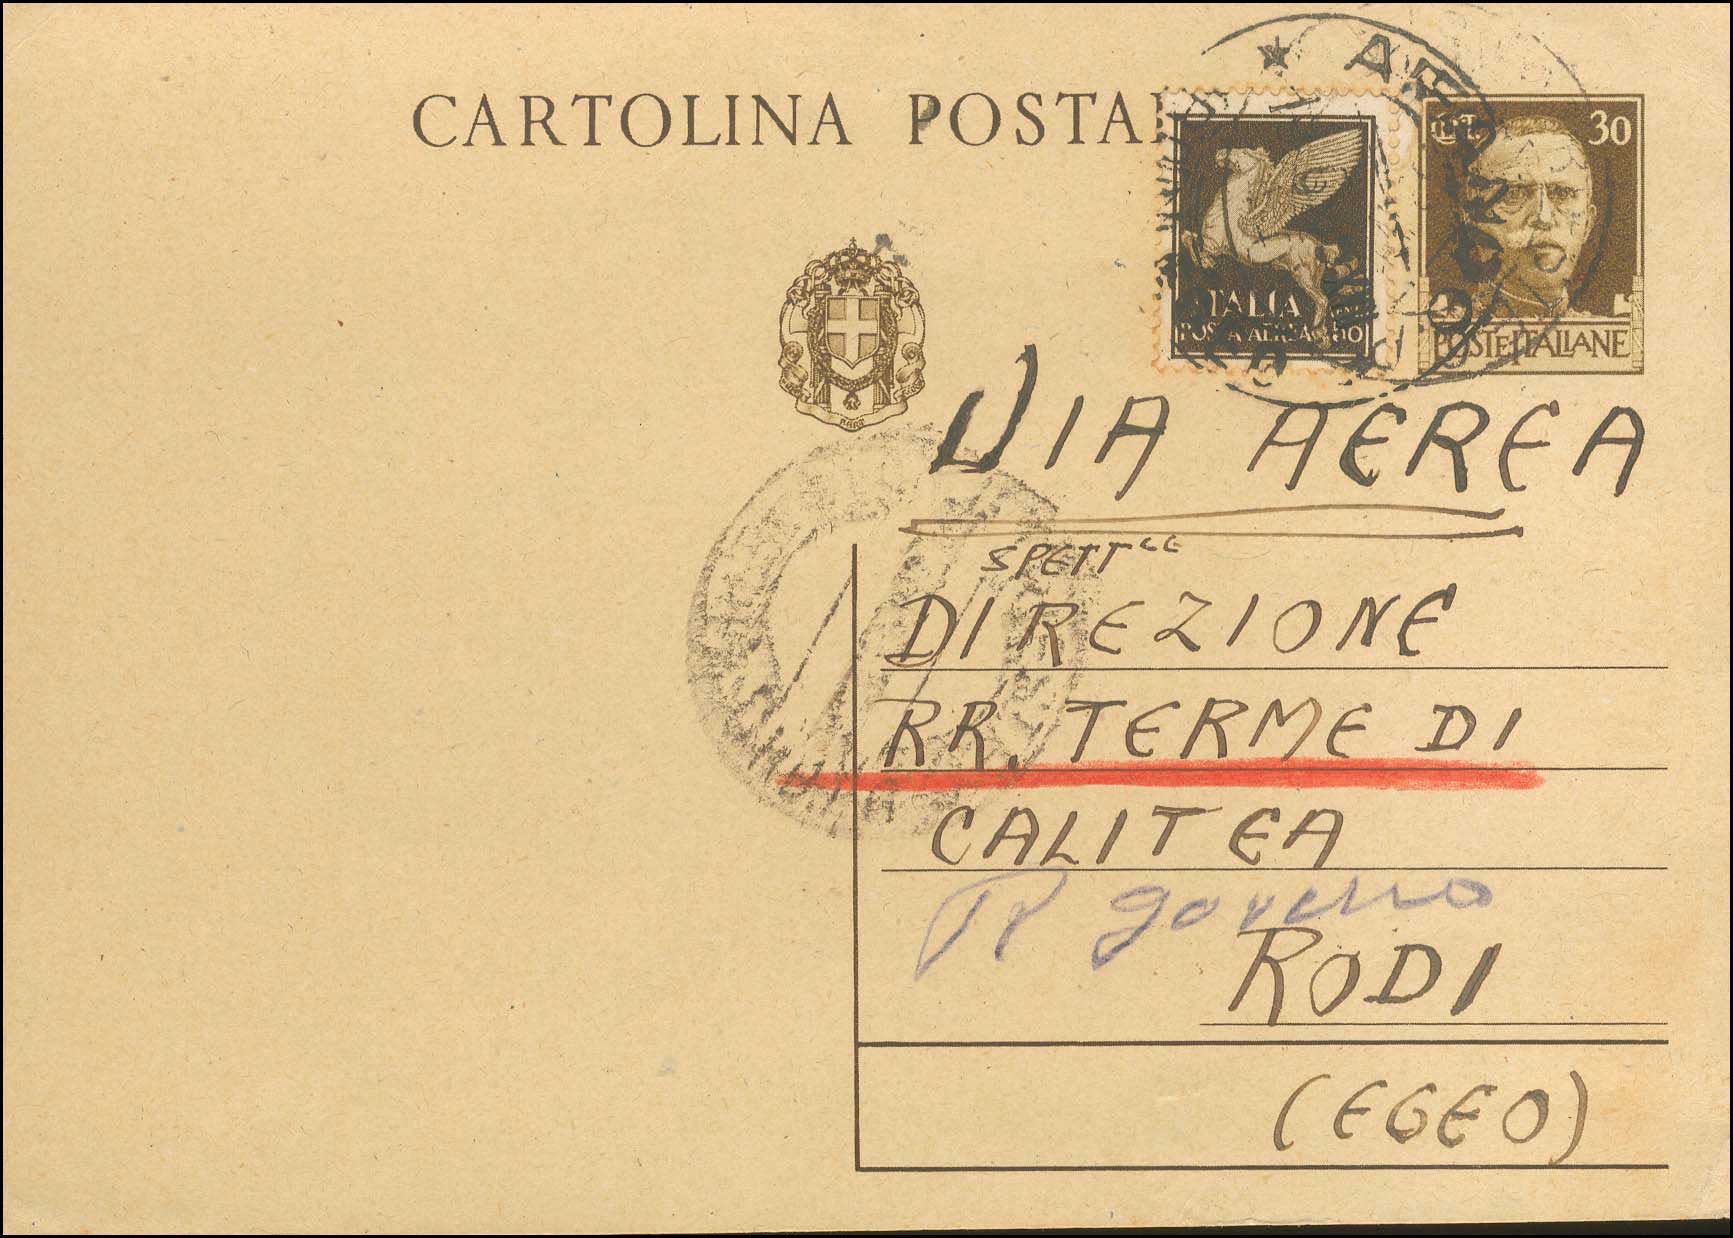 CARTOLINA POSTA
CENT. 30
ITALIA
POSTA AEREA
POSTE ITALIANE
FERT
VIA AEREA
SPETTLE
DIREZIONE
RR. TERME DI
CALITEA
governo
RODI
(EGEO)